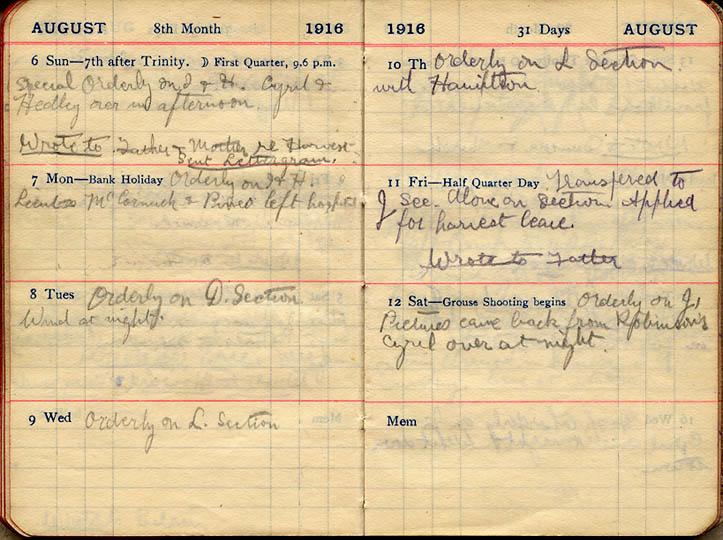 AUGUST 8th Month 1916
6 Sun—7th after Trinity. ☽ First Quarter, 9.6 p.m.
Special Orderly on J & H. Cyril &
Hedley over in afternoon.
Wrote to Father & Mother re Harvest.
Sent Lettergram.
7 Mon—Bank Holiday Orderly on J & H.
McCormick & left
8 Tues Orderly on D. Section
Wind at night.
9 Wed Orderly on L. Section
1916 31 Days AUGUST
10 Th Orderly on L Section.
with Hamilton
11 Fri—Half Quarter Day Transfered to
J Sec. Alone on Section. Applied
for harvest leave.
Wrote to Father
12 Sat—Grouse Shooting begins Orderly on J.
Pictures came back from Robinson's
Cyril over at night.
Mem